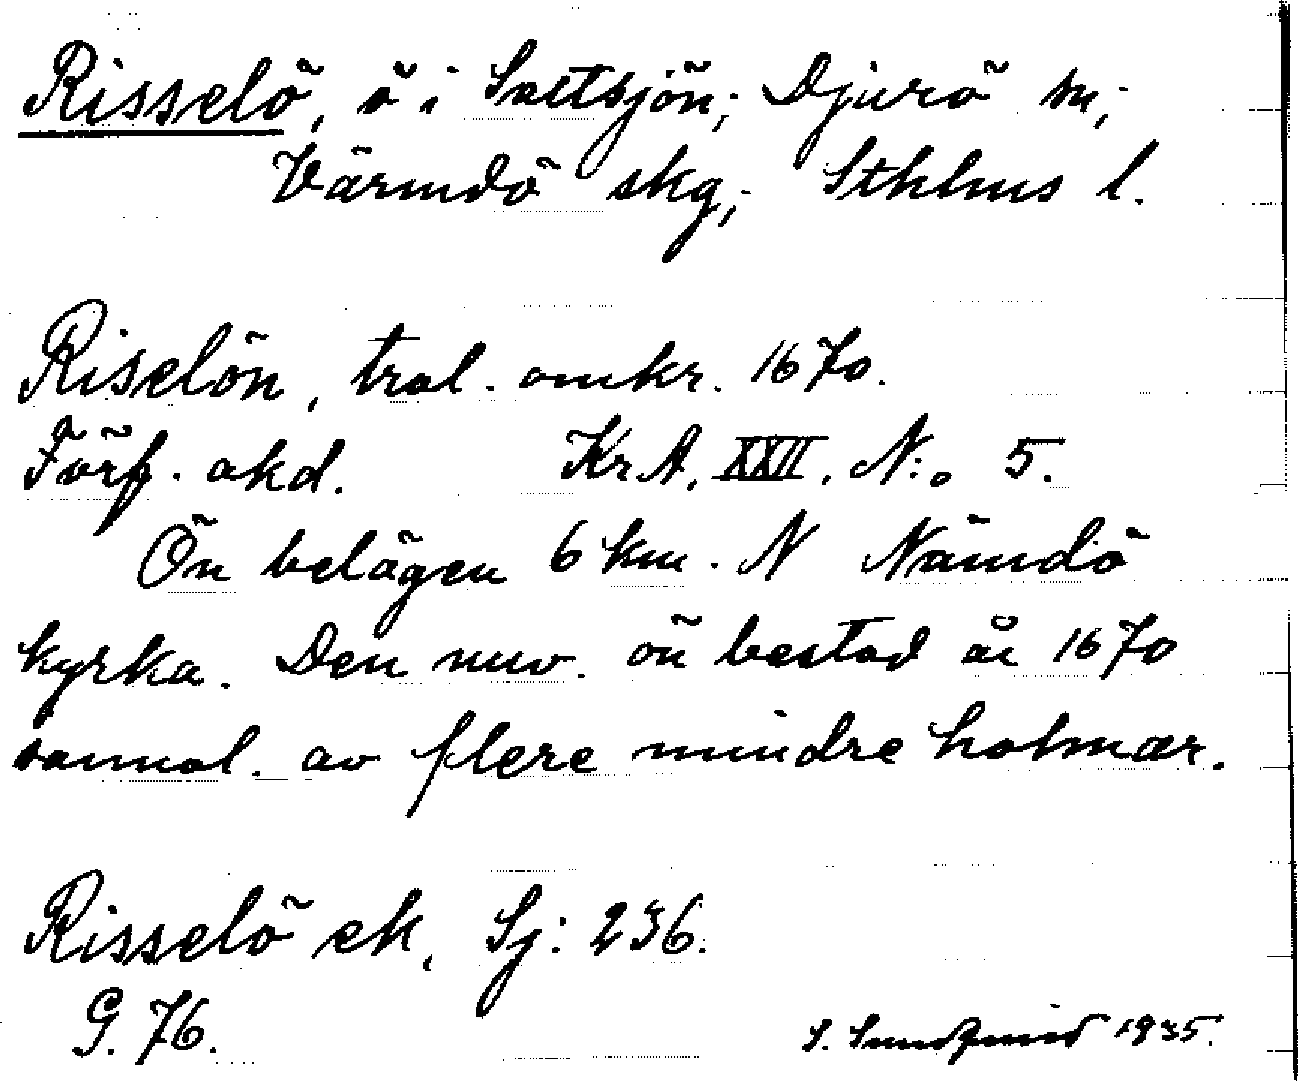 Risselö, ö i Saltsjön; Djurö sn;
Värmdö skg; Sthlms l.
Riselön, tral. omkr. 1670.
Förf. okd. KrA, XXII, N:o 5.
Ön belägen 6 km. N Nämdö
kyrka. Den nuv. ön bestod år 1670
sannol. av flere mindre holmar.
Risselö ek, Sj: 236.
G. 76.
S. 1935.